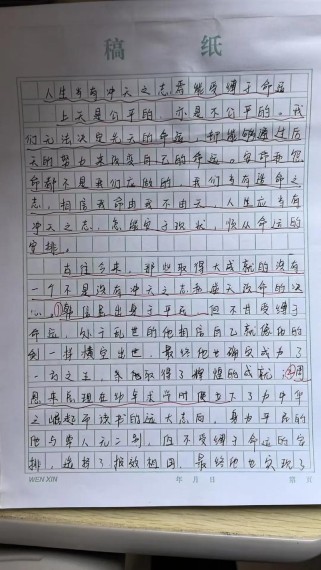 稿 纸
人生当有冲天之志焉能受缚于命运
上天是公平的，亦是不公平的。我
们无法决定先天的命运，却能够通过后
天的努力来改变自己的命运。安命而
命都不是我们应做的，我们当有造命之
志，相信我命由我不由天。人生应当有
冲天之志，怎能安于现状，顺从命运的
安排。
古往今来，那些取得大成就的没有
一个不是没有冲天之志和逆天改命的决
心。①韩信虽出身于平民，但不甘受缚于
命运，处于乱世的他相信自己就像他的
剑一样横空出世，最终他也确实成为了
一方之王，取得了辉煌的成就。②周
恩来年少时便立下了为中华
之崛起而读书的远大志向，身为平民的
他与常人无二别，但不受缚于命运的安
排，选择了报效祖国，最终他也实现了
WEN XIN 年 月 日 第 页